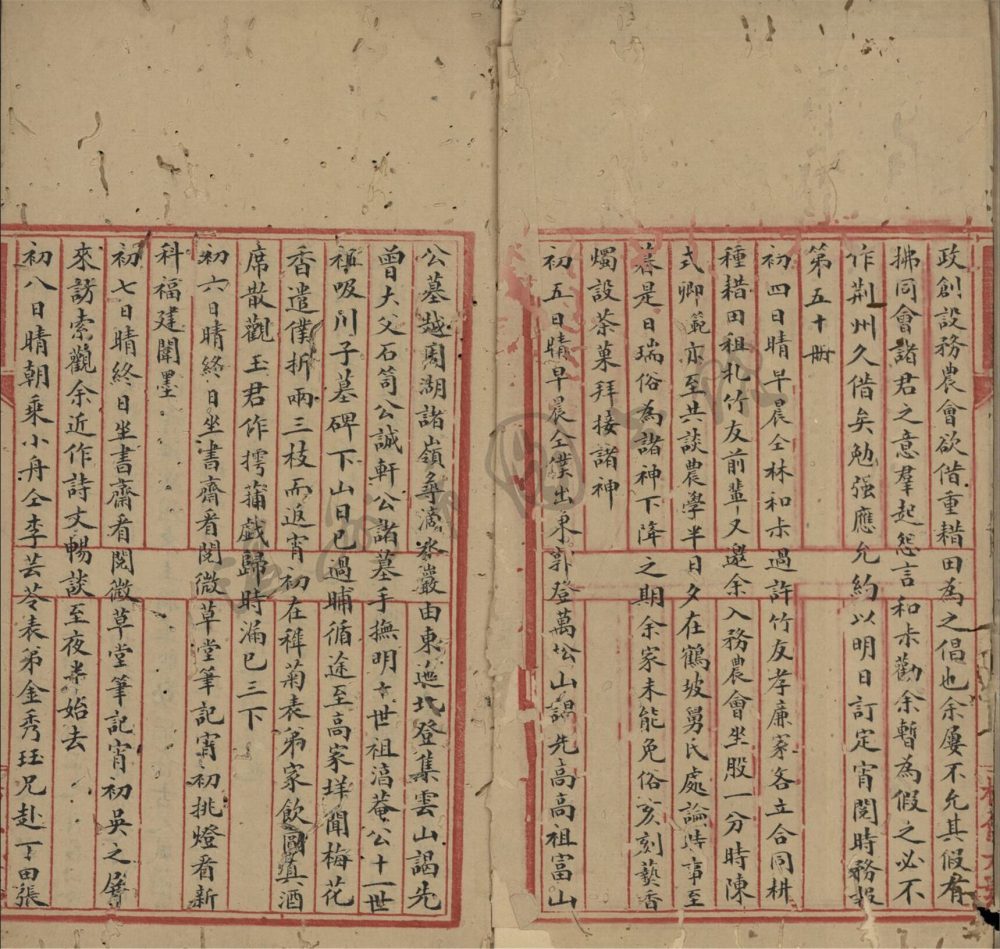 政創設務農會欲借重耤田為之倡也余屢不允其假有
拂同會諸君之意羣起怨言和未勸余暫為假之必不
作荆州久借矣勉强應允約以明日訂定宵閱時務報
第五十冊
初四日晴早晨仝林和未過許竹友孝廉家各立合同耕
種耤田租札竹友前輩又邀余入務農會坐股一分時陳
式卿範亦至共談農學半日夕在鶴坡舅氏處論時事至
暮是日瑞俗為諸神下降之期余家未能免俗亥刻爇香
燭設茶菓拜接諸神
初五日晴早晨仝僕出東郭登萬松山謁先高高祖富山
公墓越周湖諸嶺尋滴水巖由東迤北登集雲山謁先
曾大父石笥公誠軒公諸墓手撫明十世祖滈菴公十一世
祖吸川子墓碑下山日已過晡循途至高家垟聞梅花
香遣僕折兩三枝而返宵初在穉菊表弟家飲圓真酒
席散觀玉君作摴蒱戲歸時漏已三下
初六日晴終日坐書齋看閱微草堂筆記宵初挑燈看新
科福建闈墨
初七日晴終日坐書齋看閱微草堂筆記宵初吳之屏
來訪索觀余近作詩文暢談至夜半始去
初八日晴朝乘小舟仝李芸苓表弟金秀珏兄赴丁田張